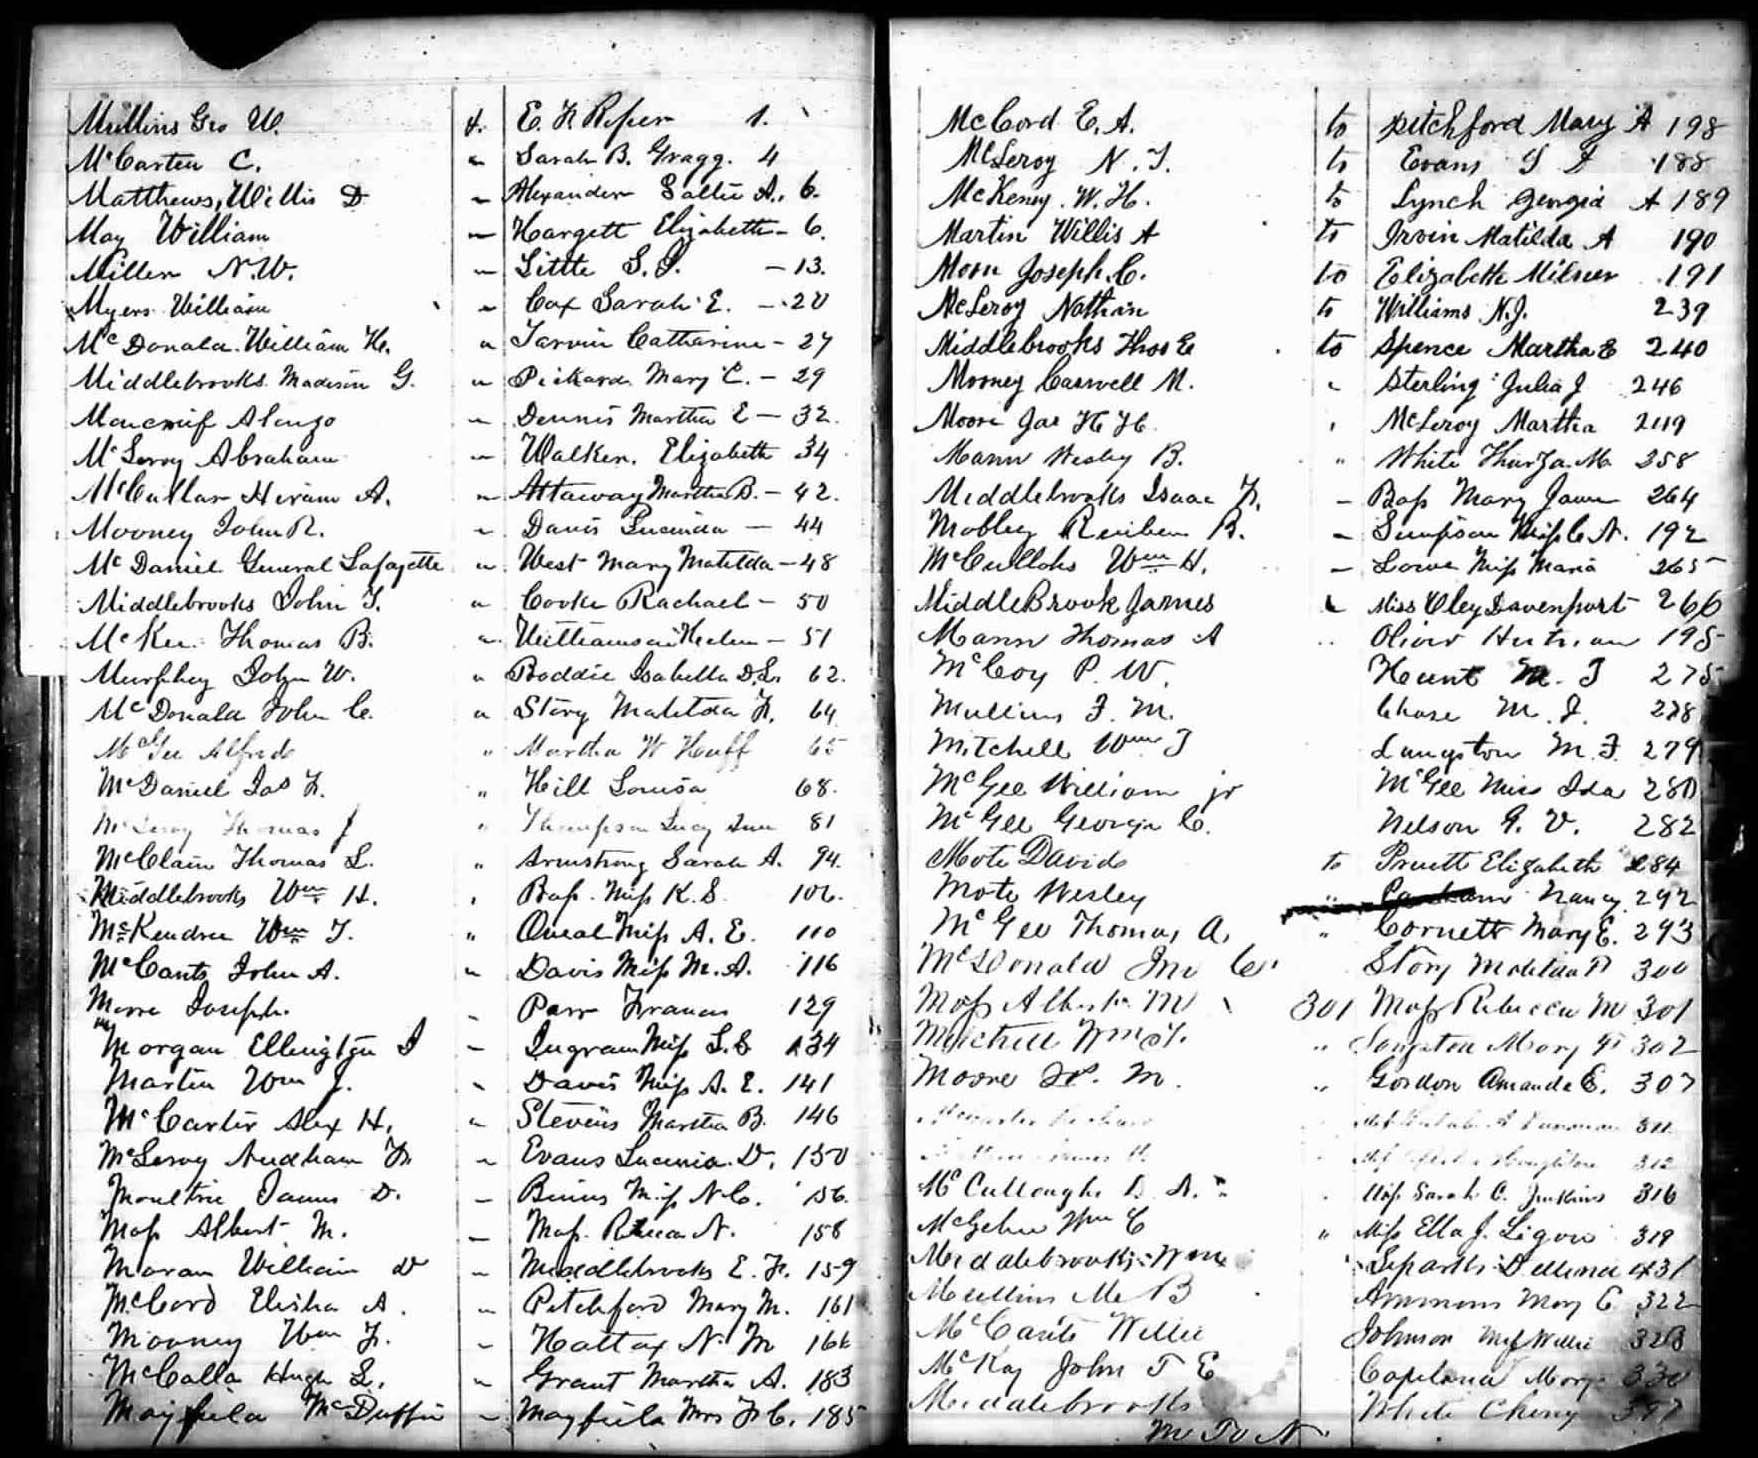 Mullins Geo W. to E. F. Piper 1.
McCarten C. " Sarah B. Gragg. 4
Matthews, Willis D " Alexander Sallie A. 6.
May William " Hargett Elizabeth - 6.
Miller N.W. " Little S. J. - 13.
Myers William " Cox Sarah E. - 20
McDonald William H. " Tarvin Catharine - 27
Middlebrooks Madison G. " Pickard Mary C. - 29
Moncrief Alonzo " Dennis Martha E - 32.
McLeroy Abraham " Walker, Elizabeth 34
McCullar Hiram A. " Attaway Martha B. - 42.
Mooney John R. " Davis Lucinda - 44
McDaniel General Lafayette " West Mary Matilda - 48
Middlebrooks John T. " Cooke Rachael - 50
McKee Thomas B. " Williamson Helen - 51
Murphey John W. " Boddie Isabella D.L. 62.
McDonald John C. " Story Matilda F. 64
McGee Alfred " Martha W Huff 65
McDaniel Jas F. " Hill Louisa 68.
McLeroy Thomas J " Thompson Lucy Ann 81
McClain Thomas L. " Armstrong Sarah A. 94.
Middlebrooks Wm H. " Bass Miss K. S. 106.
McKendree Wm T. " Oneal Miss A. E. 110
McCants John A. " Davis Miss M. A. 116
Moore Joseph. " Parr Frances 129
Morgan Ellington J " Ingram Miss L. C. 134
Martin Wm J. " Davis Miss A. E. 141
McCarter Alex H. " Stevens Martha B. 146
McLeroy Needham F. " Evans Lucinia D. 150
Moultrie James D. " Binns Miss N. C. 156.
Moss Albert M. " Moss N. 158
Moran William D " Middlebrooks E. F. 159
McCord Elisha A. " Pitchford Mary M. 161
Mooney Wm F. " Hattax N. M 166
McCalla Hugh L. " Grant Martha A. 183
Mayfield McDuffie " Mayfield Mrs F. C. 185
McCord E. A. to Pitchford Mary A 198
McLeroy N. T. to Evans 188
McKeny. W. H. to Lynch Georgia A 189
Martin Willis A to Irvin Matilda A 190
Moon Joseph C. to Elizabeth Milner 191
McLeroy Nathan to Williams N. J. 239
Middlebrooks Thos E to Spence Martha E 240
Mooney Caswell M. " Sterling Julia J 246
Moore Jas H H. " McLeroy Martha 249
Mann Wesley B. " White Thurza M 258
Middlebrooks Isaac F. - Bass Mary Jane 264
Mobley Reuben B. - Simpson Miss C A. 192
McCullohs Wm H. - Lowe Miss Maria 265
MiddleBrook James " Miss Oley Davenport 266
Mann Thomas A " Oliver 195
McCoy P. W. Hunt M. J 275
Mullins F. M. Chase M. J. 278
Mitchell Wm T Langston M. F. 279
McGee William jr McGee Miss Ida 280
McGee George C. Nelson G. V. 282
Mote David to Pruett Elizabeth 284
Mote Wesley " Nancy 292
McGee Thomas A. " Cornett Mary E. 293
McDonald Jno C. Story Matilda F 300
Moss Albert M 301 Moss Rebecca M 301
Mitchell Wm T. " Langston Mary F 302
Moore M. " Gordon Amanda E. 307
311
312
McCullough " Miss Sarah C. Jenkins 316
McGehee Wm C " Miss Ella J. Ligon 319
Middlebrooks Wm 431
Mullins Mc B Ammons Mary C 322
McCants Willie Johnson Miss Willie 323
McKay John T E Copeland Mary 330
Middlebrooks White Cheny
M To N